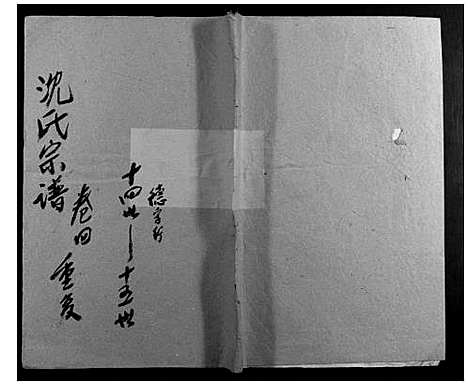 沈氏宗谱
卷四 重复
十四世——十五世
德字行